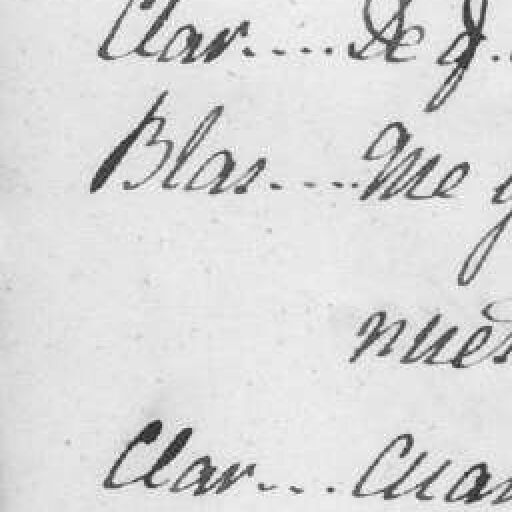 Clar.... De q..
Blas.... Me
nues
Clar.... Cuan